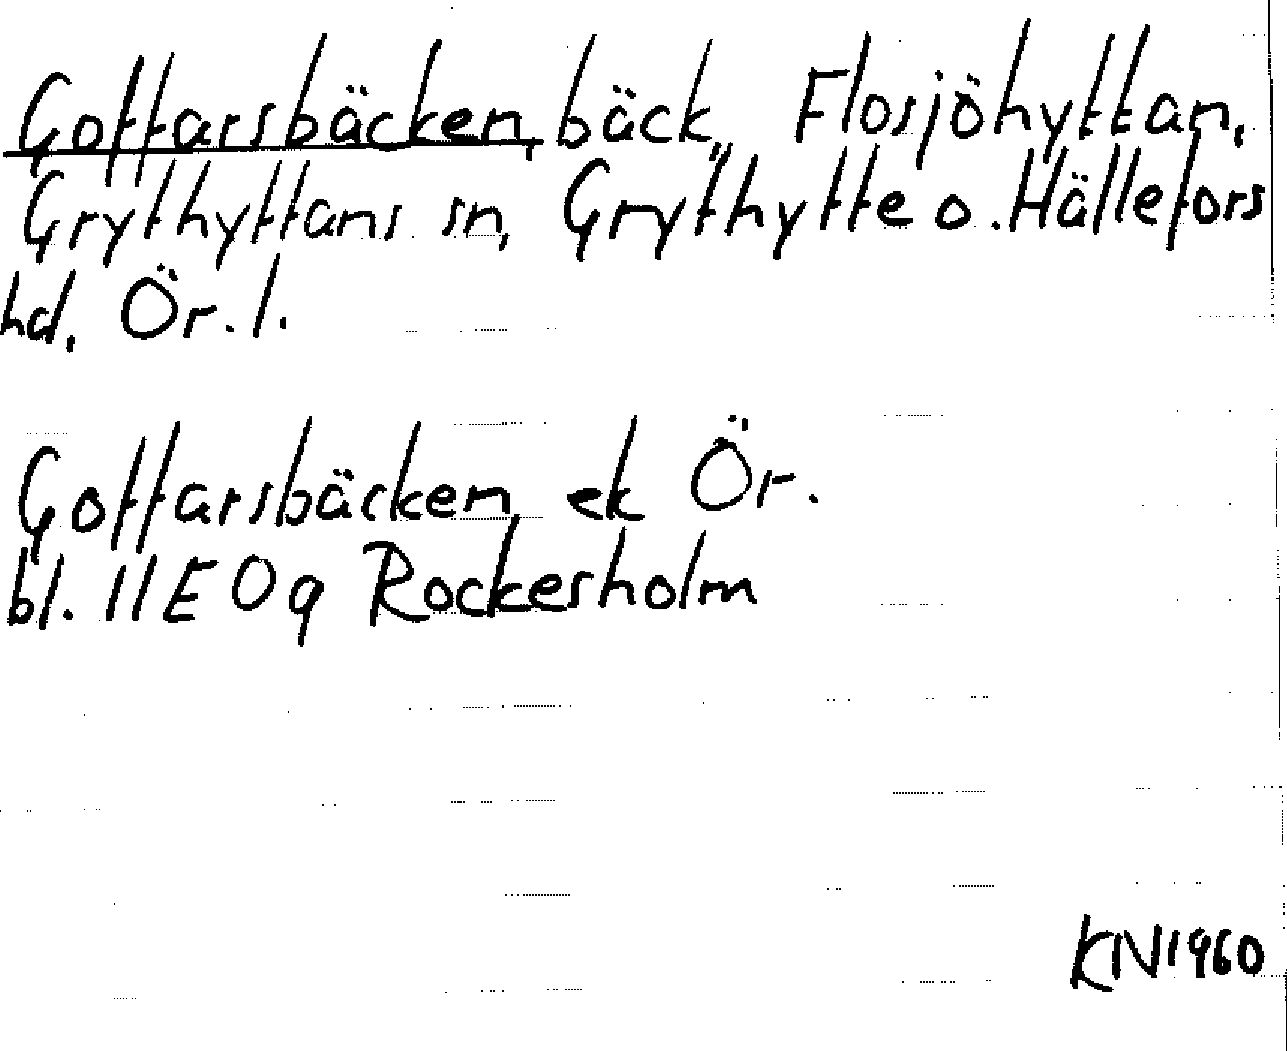 Gottarsbäcken, bäck, Flosjöhyttan,
Grythyttans sn, Grythytte o. Hällefors
hd. Ör. l.
Gottarsbäcken ek Ör.
bl. 11E 0g Rockesholm
KN 1960